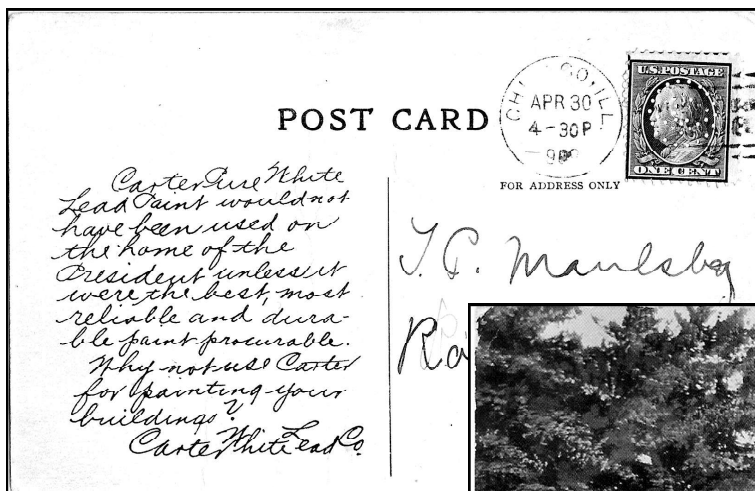 POST CARD
CHICAGO, ILL.
APR 30
4-30P
U.S. POSTAGE
ONE CENT
FOR ADDRESS ONLY
Carter Pure White
Lead Paint would not
have been used on
the home of the
President unless it
were the best, most
reliable and dura-
ble paint procurable.
Why not use Carter
for painting your
buildings?
Carter White Lead Co.
Maulsby